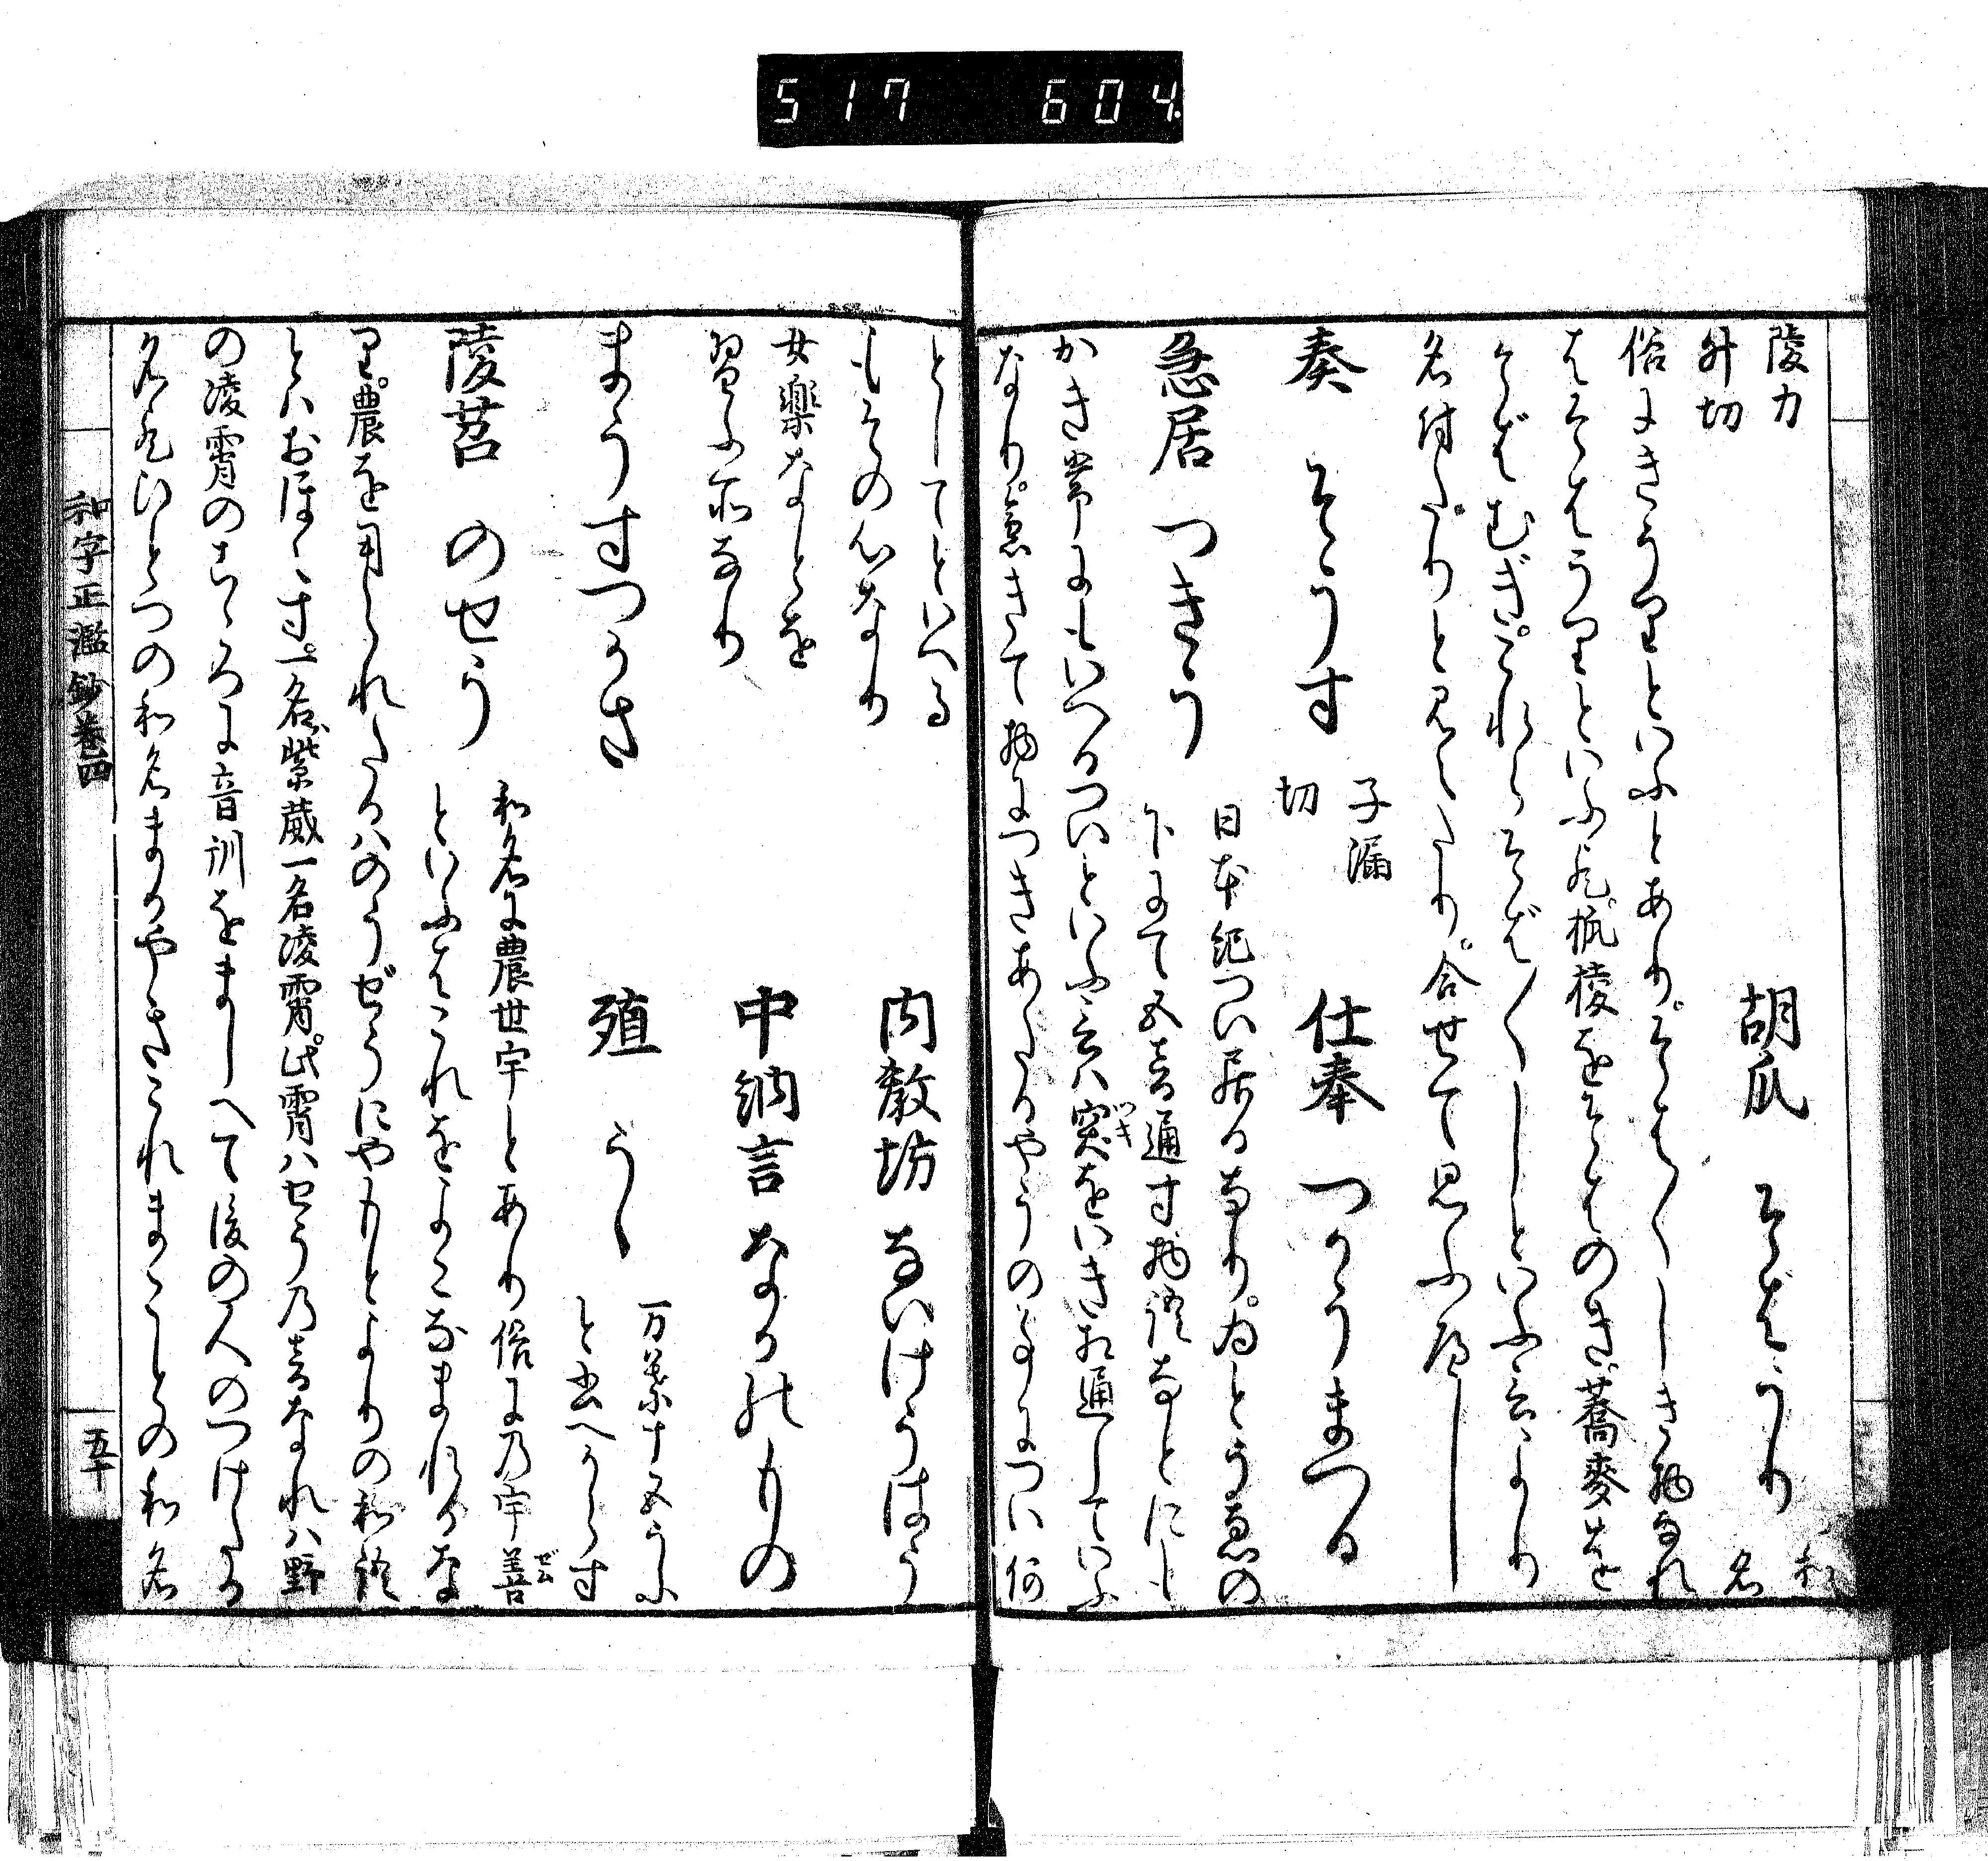 517 604
陵力
升切
胡瓜 そばうり 和名
俗にきうりといふとあり。そば〳〵しき物なれ
はそばうりといふ歟。柧稜をそばのき。蕎麥をも
そばむぎ。これらそば〳〵しといふ言より
名付たりと見えたり。合せて思ふへし
奏 そうす 子漏切
仕奉 つかうまつる
急居 つきう
日本紀つい居るなり。ゐとうゑの
下にて五音通す物語なとにも
かき常にもいへるついといふ言ハ突をいきお通していふ
つき
なり。急きて物につきあたるやうの事につい何
としてといへる
もその心なり
内教坊 ないけうはう
女樂なとを
習ふ所なり
中納言 なかのもの
まうすつかさ
殖 うゝ
万葉十五うふ
と書へからす
陵苕 のせう
和名に農世宇とあり俗に乃宇善
ぜむ
といふはこれをよこなまれるな
り。農を用られたるハのうぜうにやもとよりの和語
とハおほえす。一名紫葳一名凌霄。此霄ハせう乃音なれハ野
の凌霄のこゝろに音訓をましへて後の人のつけたる
名歟ひとつの和名まかやきこれまことの和名
和字正濫鈔巻四
五十